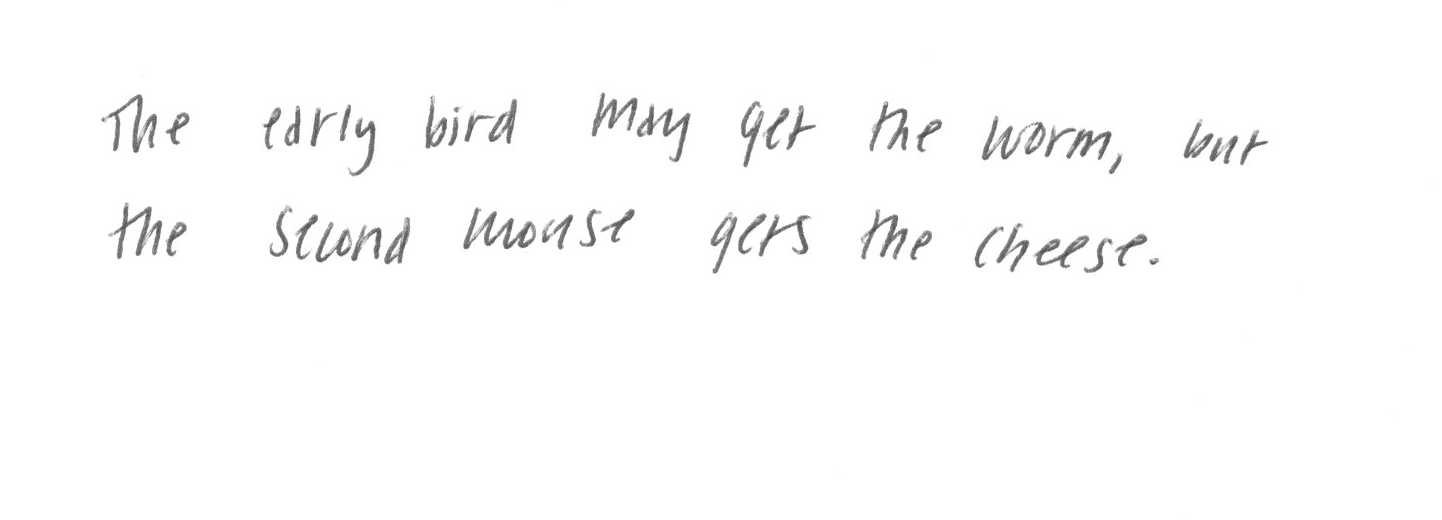 The early bird may get the worm, but
the second mouse gets the cheese.